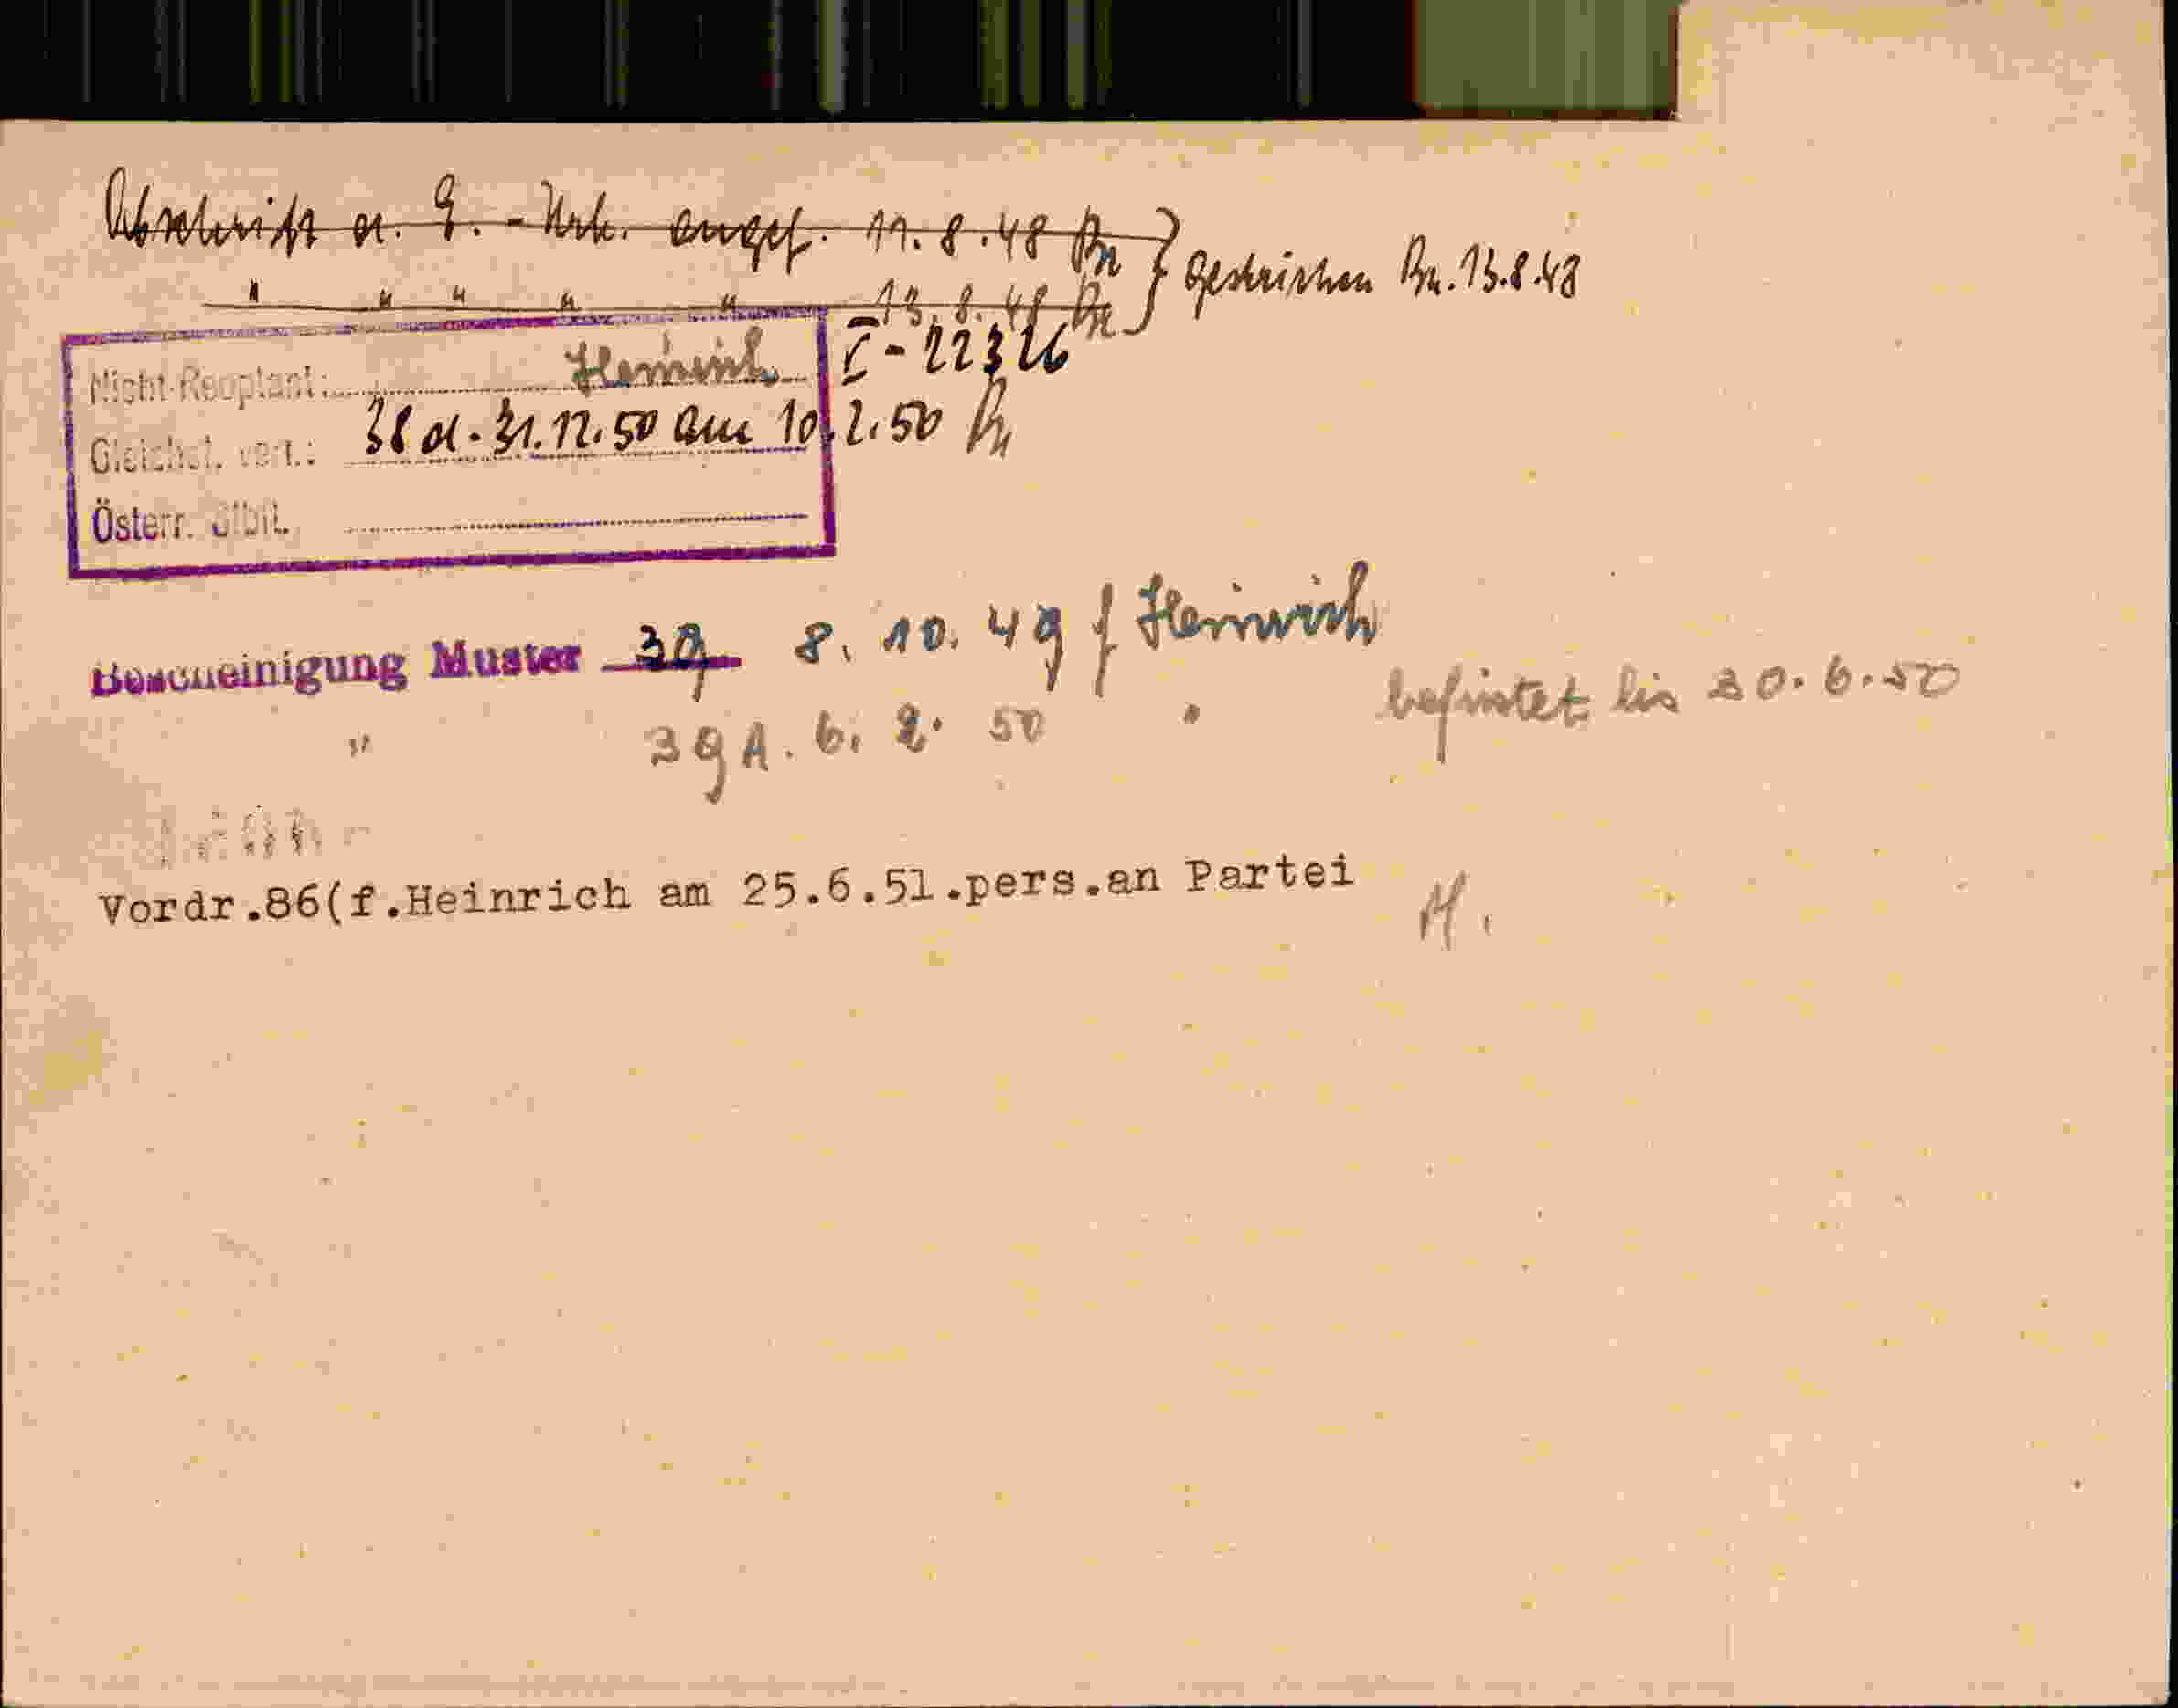 Abschrift a. G.-Urk. angef. 11.8.48 Pr
" " " " " 13.8.48 Pr } Gestrichen Pr. 13.8.48
Nicht-Reoptant: Heinrich I-22326
Gleichst. verl.: 38 d. 31.12.50 am 10.2.50 Pr
Österr. Stbft.
Bescheinigung Muster 3g 8. 10. 49 f Heinrich
" 3g A. 6. 2. 50 " befristet bis 30.6.50
Vordr.86(f.Heinrich am 25.6.51.pers.an Partei M.